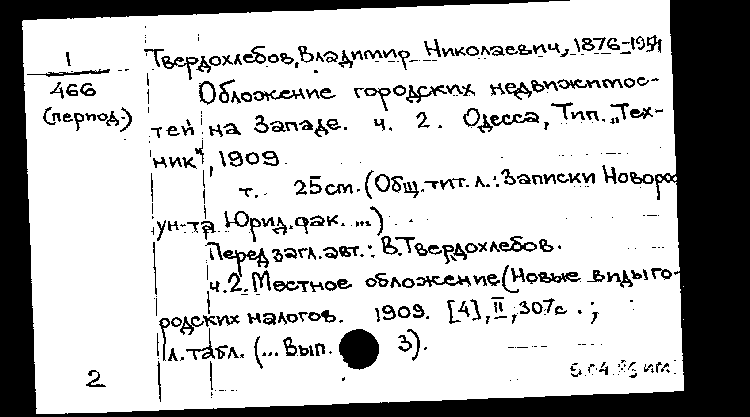 1
466
(период.)
Твердохлебов, Владимир Николаевич, 1876-1954
Обложение городских недвижимос-
тей на Западе. ч. 2. Одесса, Тип. „Тех-
ник", 1909.
т. 25см. (Общ. тит. л.: Записки Новорос
ун-та Юрид. фак. ...)
Перед загл. авт.: В. Твердохлебов.
ч. 2. Местное обложение (Новые виды го-
родских налогов. 1909. [4], II, 307с.;
1 л. табл. (... Вып. 3).
2